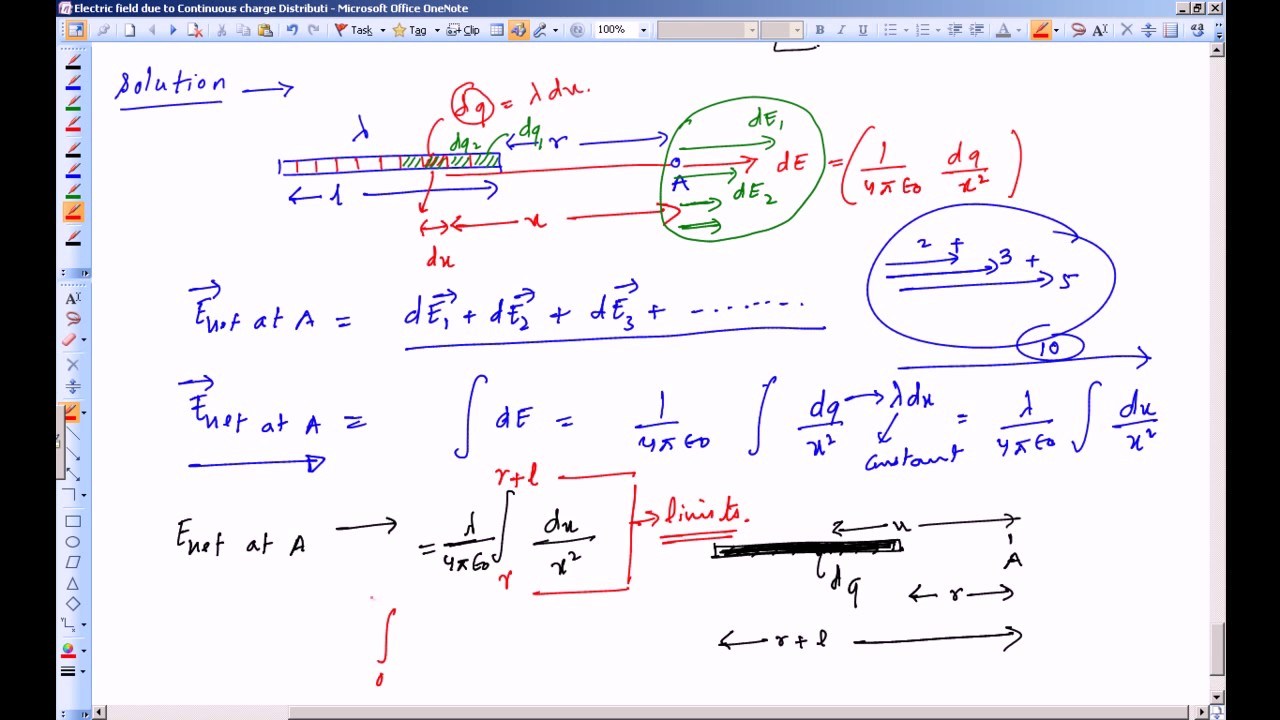 Electric field due to Continuous charge Distributi - Microsoft Office OneNote
Task Tag Clip 100% B I U
Solution →
dq = λ dx.
λ dq₂ dq₁ r dE₁
A dE = (1/4πε₀ dq/x²)
l x dE₂
dx
2 + 3 + 5
10
E⃗net at A = dE⃗₁ + dE⃗₂ + dE⃗₃ + ........
E⃗net at A = ∫ dE = 1/4πε₀ ∫ dq/x² → λdx = λ/4πε₀ ∫ dx/x²
constant
r+l
Enet at A → = λ/4πε₀ ∫ dx/x² → limits.
r
x
A
dq
r
r+l
∫
0